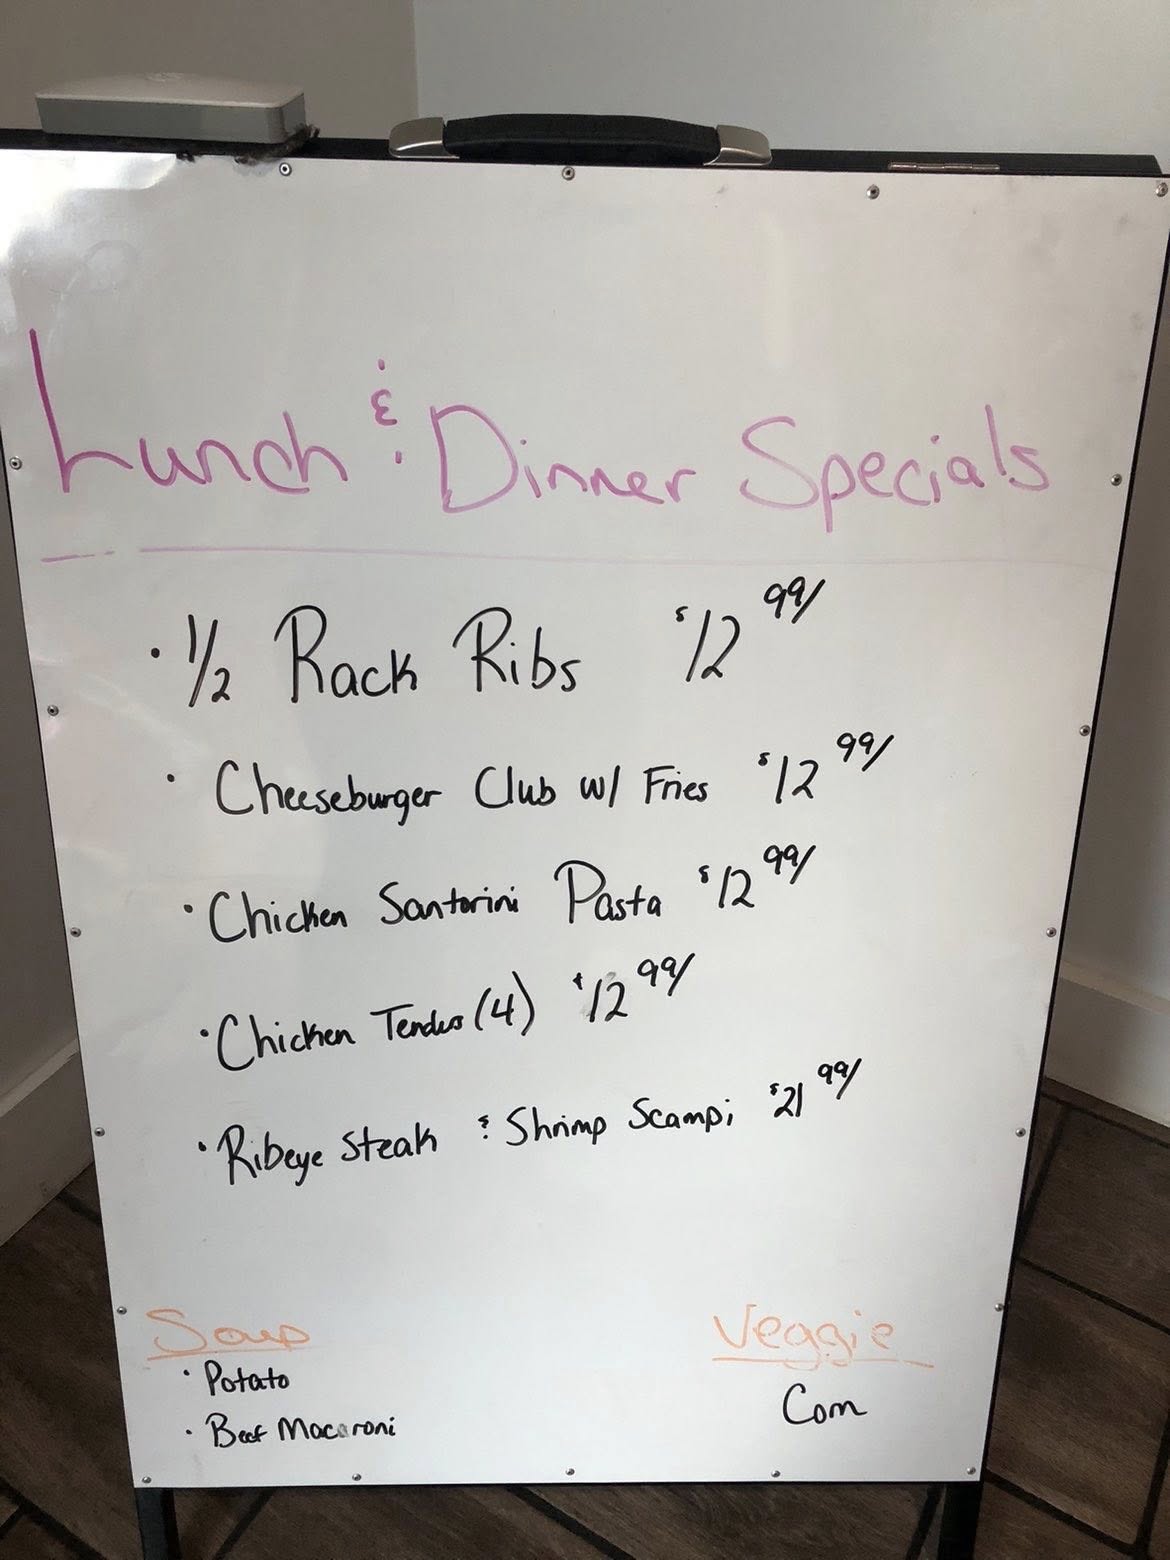 Lunch & Dinner Specials
· 1/2 Rack Ribs $12 99/
· Cheeseburger Club w/ Fries $12 99/
· Chicken Santorini Pasta $12 99/
· Chicken Tenders (4) $12 99/
· Ribeye Steak & Shrimp Scampi $21 99/
Soup
· Potato
· Beef Macaroni
Veggie
Corn